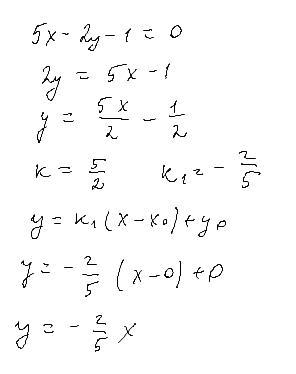 5x - 2y - 1 = 0
2y = 5x - 1
y = 5x/2 - 1/2
k = 5/2    k₁ = - 2/5
y = k₁(x - x₀) + y₀
y = - 2/5 (x - 0) + 0
y = - 2/5 x